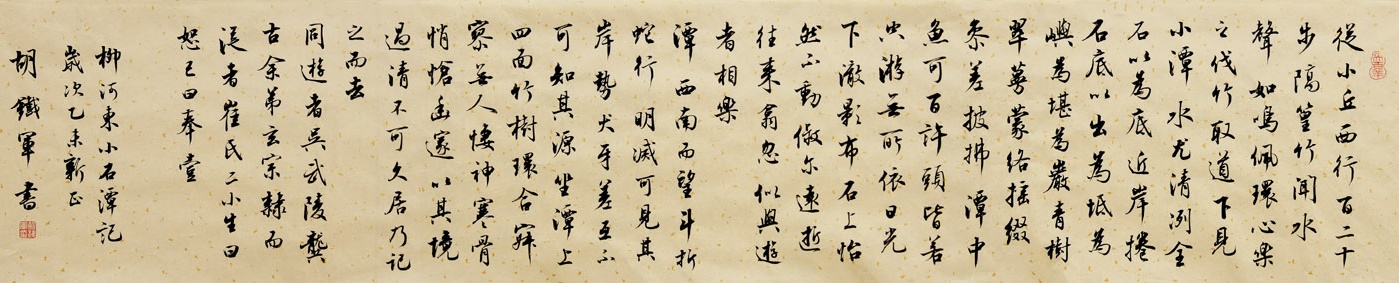 從小丘西行百二十
步隔篁竹聞水
聲如鳴佩環心樂
之伐竹取道下見
小潭水尤清冽全
石以為底近岸捲
石底以出為坻為
嶼為堪為巖青樹
翠蔓蒙絡搖綴
參差披拂潭中
魚可百許頭皆若
空游無所依日光
下澈影布石上怡
然不動俶尔遠逝
往來翕忽似與遊
者相樂
潭西南而望斗折
蛇行明滅可見其
岸勢犬牙差互不
可知其源坐潭上
四面竹樹環合寂
寥無人悽神寒骨
悄愴幽邃以其境
過清不可久居乃記
之而去
同遊者吳武陵龔
古余弟玄宗隸而
從者崔氏二小生曰
恕己曰奉壹
柳河東小石潭記
歲次乙未新正
胡鐵軍書